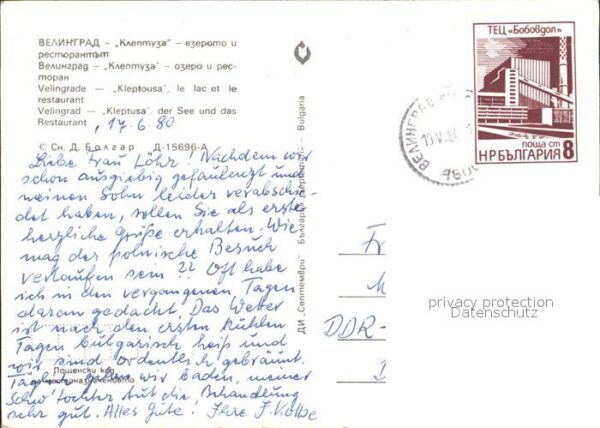 ВЕЛИНГРАД – „Клептуза" – езерото и
ресторантът
Велинград – „Клептуза" – озеро и рес-
торан
Velingrade – „Kleptousa", le lac et le
restaurant
Velingrad – „Kleptusa", der See und das
Restaurant
, 17.6.80
© Сн. Д. Болгар Д-15696-А
Liebe Frau Löhr! Nachdem wir
schon ausgiebig gefaulenzt und
meinen Sohn leider verabschie-
det haben, sollen Sie als erste
herzliche Grüße erhalten. Wie
mag der polnische Besuch
verlaufen sein?? Oft habe
ich in den vergangenen Tagen
daran gedacht. Das Wetter
ist nach den ersten kühlen
Tagen bulgarisch heiß und
wir sind ordentlich gebräunt.
Täglich gehen wir baden, meiner
Schw'tochter tut die Behandlung
sehr gut. Alles Gute! Ihre J. Kolbe
Пощенски код
местоназначението
ДИ „Септември"
Българска фотография
Bulgaria
ТЕЦ «Бобовдол»
поща ст
НР БЪЛГАРИЯ 8
ВЕЛИНГРАД
4600
Fr
M
DDR-
privacy protection
Datenschutz